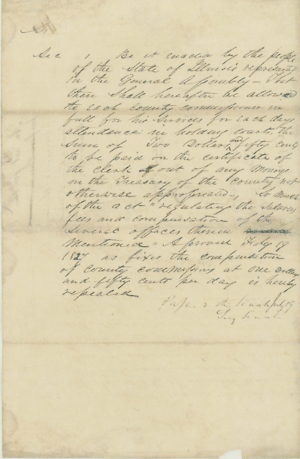 Sec 1 Be it enacted by the people
of the State of Illinois represented
in the General Assembly - that
there Shall hereafter be allowed
to each county commissioner in
full for his Services for each days
attendance in holding courts the
Sum of Two Dollars Fifty cents
to be paid on the certificate of
the clerk of out of any Moneys
in the Treasury of the County not
otherwise appropriated, So much
of the act regulating the Salaries
fees and compensation of the
Several officers therein
Mentioned. Aproved Feby 19
1827 as fixes the compensation
of county commissioners at one Dollar
and fifty cents per day is hereby
repealed